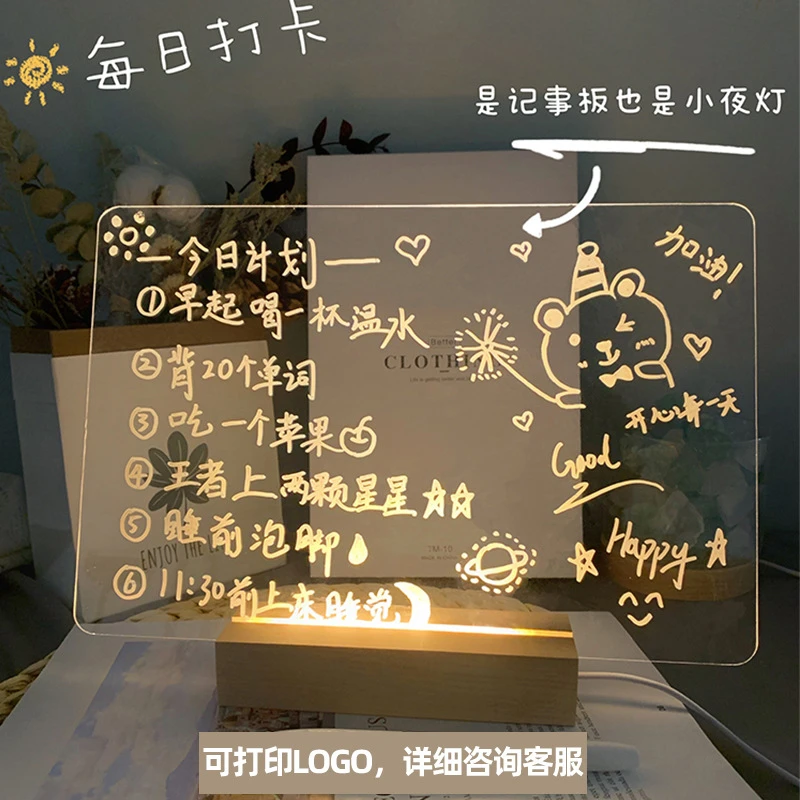 每日打卡
是记事板也是小夜灯
今日计划
①早起喝一杯温水
②背20个单词
③吃一个苹果
④王者上两颗星星
⑤睡前泡脚
⑥11:30前上床睡觉
加油!
开心每一天
Good
Happy
CLOTHI
TM-10
ENJOY THE
可打印LOGO，详细咨询客服